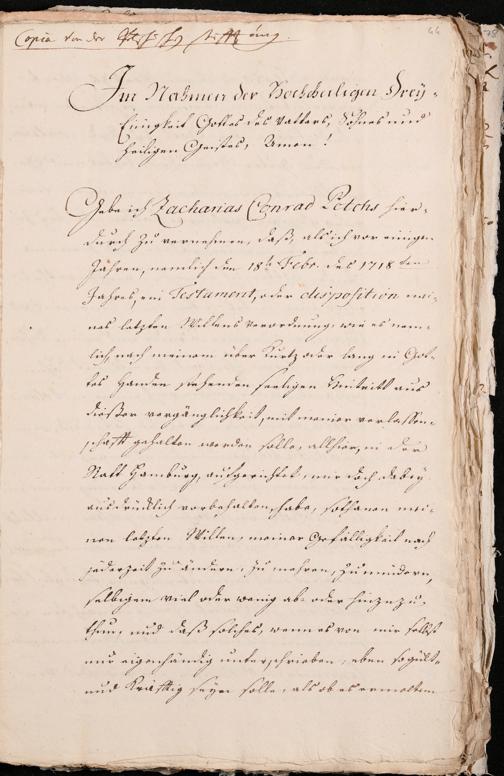 44
Copia von der Stifftung.
Im Nahmen der Hochheiligen Drey-
Einigkeit Gottes des Vatters, Sohnes und
Heiligen Geistes, Amen!
Gebe ich Zacharias Conrad Petchs hier-
durch zu vernehmen, daß, als ich vor einigen
Jahren, nemlich den 18ten Febr. des 1718ten
Jahres, ein Testament, oder disposition mei-
nes letzten Willens verordnung, wie es nem-
lich nach meinem über kurtz oder lang in Got-
tes Handen stehenden seeligen Hintritt aus
dießer vergänglichkeit, mit meiner verlassen-
schafft gehalten werden solle, allhier, in der
Statt Hamburg, aufgerichtet, mir doch dabey
ausdrücklich vorbehalten habe, sothanen mei-
nen letzten Willen, meiner Gefälligkeit nach
jederzeit zu ändern, zu mehren, zu mindern,
selbigem viel oder wenig ab- oder hinzu zu
thun, und daß solches, wenn es von mir selbst
nur eigenhändig unterschrieben, eben so gültig
und kräfftig seyn solle, als ob es ermeltem